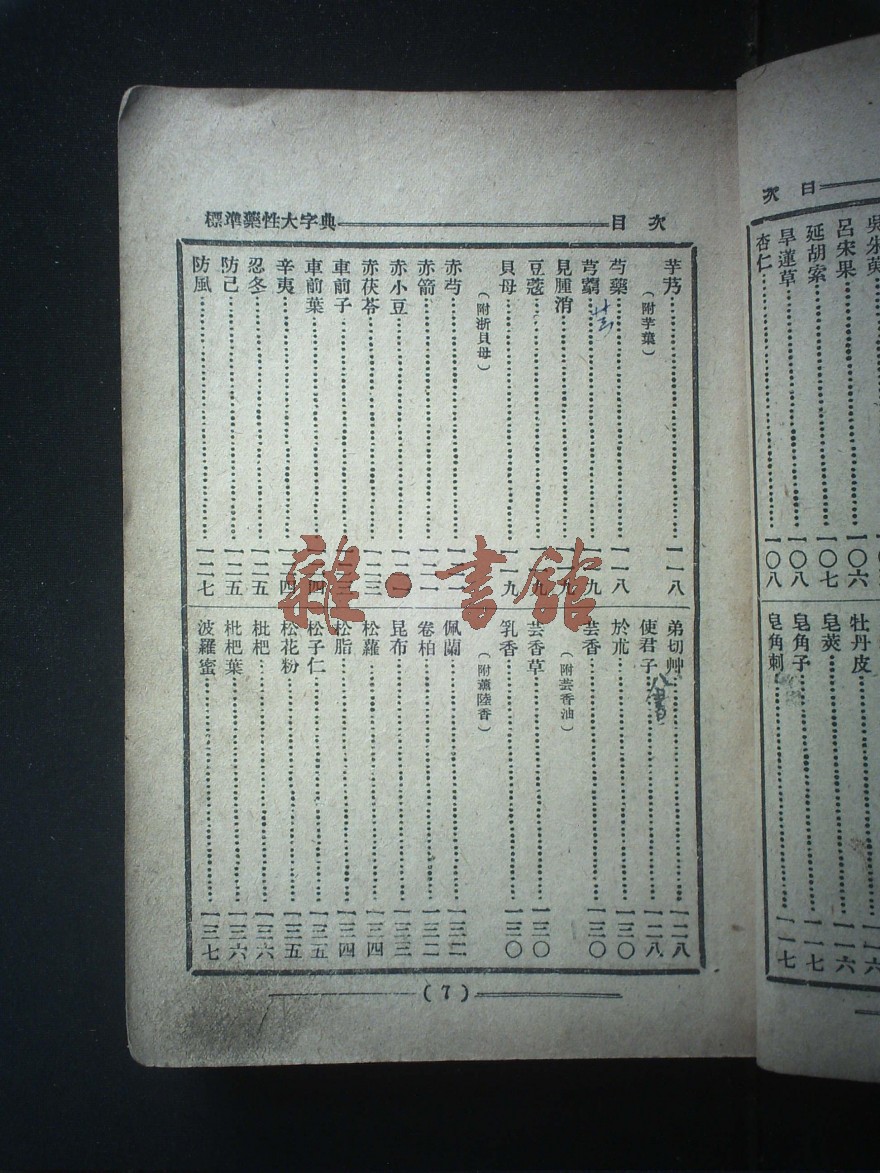 目次
標準藥性大字典
芋艿……一一八
(附芋葉)
芍藥……一一八
芎藭……一一九
見腫消……一一九
豆蔻……一一九
貝母……一一九
(附浙貝母)
赤芍
赤箭……一二一
赤小豆
赤茯苓……一二三
車前子
車前葉
辛夷
忍冬……一二五
防己……一二五
防風……一二七
弟切艸……一二八
使君子……一二八
於朮……一三〇
芸香……一三〇
(附芸香油)
芸香草……一三〇
乳香……一三〇
(附薰陸香)
佩蘭……一三二
卷柏……一三二
昆布……一三三
松蘿……一三四
松脂……一三四
松子仁……一三五
松花粉……一三五
枇杷……一三六
枇杷葉……一三六
波羅蜜……一三七
(7)
雜·書館
目次
吳朱萸
呂宋果……一〇六
延胡索……一〇七
旱蓮草……一〇八
杏仁……一〇八
牡丹皮……一一六
皂莢……一一六
皂角子……一一七
皂角刺……一一七